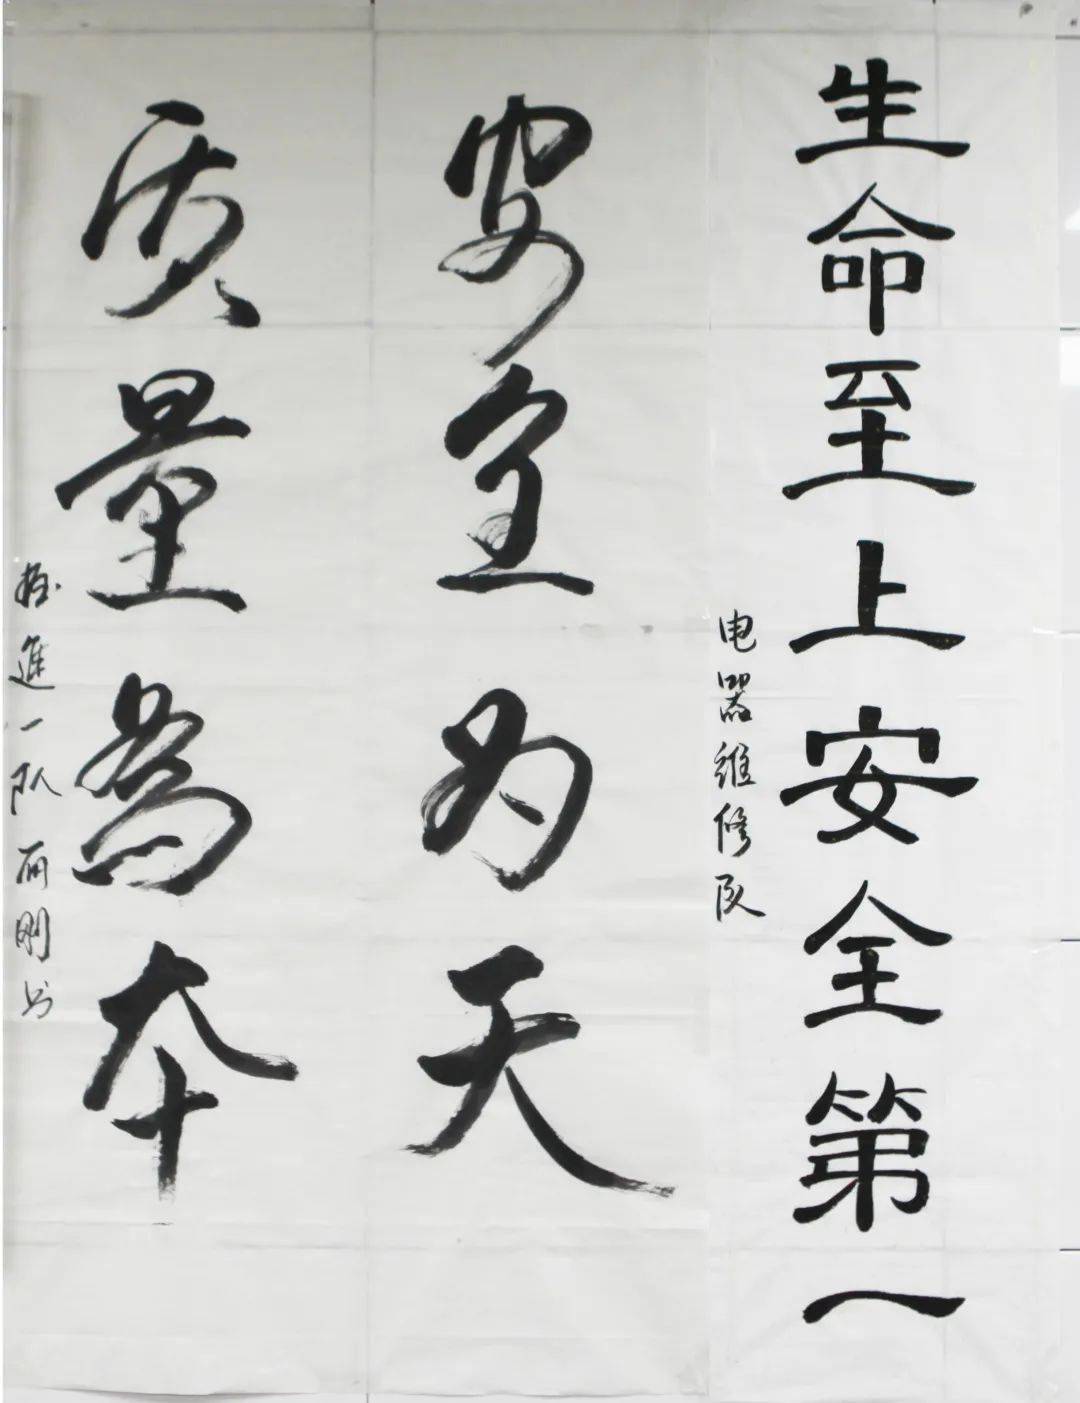 生命至上安全第一
电器维修队
安全为天
质量為本
掘進一队丙刚书